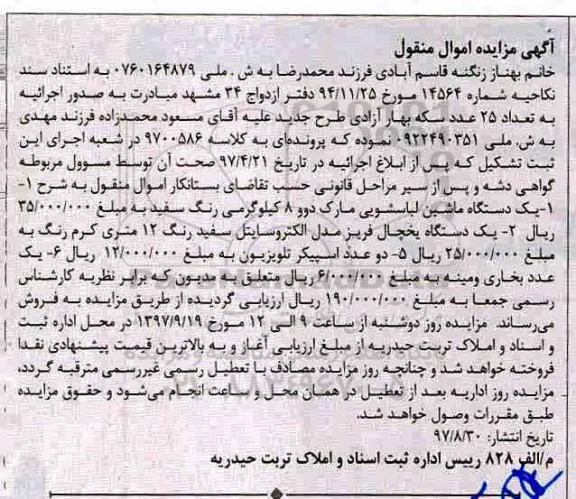 آگهی مزایده اموال منقول
خانم بهناز زنگنه قاسم آبادی فرزند محمدرضا به ش . ملی ۰۷۶۰۱۶۴۸۷۹ به استناد سند
نکاحیه شماره ۱۴۵۶۴ مورخ ۹۴/۱۱/۲۵ دفتر ازدواج ۳۴ مشهد مبادرت به صدور اجرائیه
به تعداد ۲۵ عدد سکه بهار آزادی طرح جدید علیه آقای مسعود محمدزاده فرزند مهدی
به ش. ملی ۰۹۲۲۴۹۰۳۵۱ نموده که پرونده‌ای به کلاسه ۹۷۰۰۵۸۶ در شعبه اجرای این
ثبت تشکیل که پس از ابلاغ اجرائیه در تاریخ ۹۷/۴/۲۱ صحت آن توسط مسوول مربوطه
گواهی دشه و پس از سیر مراحل قانونی حسب تقاضای بستانکار اموال منقول به شرح ۱-
۱-یک دستگاه ماشین لباسشویی مارک دوو ۸ کیلوگرمی رنگ سفید به مبلغ ۳۵/۰۰۰/۰۰۰
ریال ۲- یک دستگاه یخچال فریز مدل الکتروسایتل سفید رنگ ۱۲ متری کرم رنگ به
مبلغ ۲۵/۰۰۰/۰۰۰ ریال ۵- دو عدد اسپیکر تلویزیون به مبلغ ۱۲/۰۰۰/۰۰۰ ریال ۶- یک
عدد بخاری ومینه به مبلغ ۶/۰۰۰/۰۰۰ ریال متعلق به مدیون که برابر نظریه کارشناس
رسمی جمعا به مبلغ ۱۹۰/۰۰۰/۰۰۰ ریال ارزیابی گردیده از طریق مزایده به فروش
می‌رساند. مزایده روز دوشنبه از ساعت ۹ الی ۱۲ مورخ ۱۳۹۷/۹/۱۹ در محل اداره ثبت
و اسناد و املاک تربت حیدریه از مبلغ ارزیابی آغاز و به بالاترین قیمت پیشنهادی نقدا
فروخته خواهد شد و چنانچه روز مزایده مصادف با تعطیل رسمی غیررسمی مترقبه گردد،
مزایده روز اداریه بعد از تعطیل در همان محل و ساعت انجام می‌شود و حقوق مزایده
طبق مقررات وصول خواهد شد.
تاریخ انتشار: ۹۷/۸/۳۰
م/الف ۸۲۸ رییس اداره ثبت اسناد و املاک تربت حیدریه